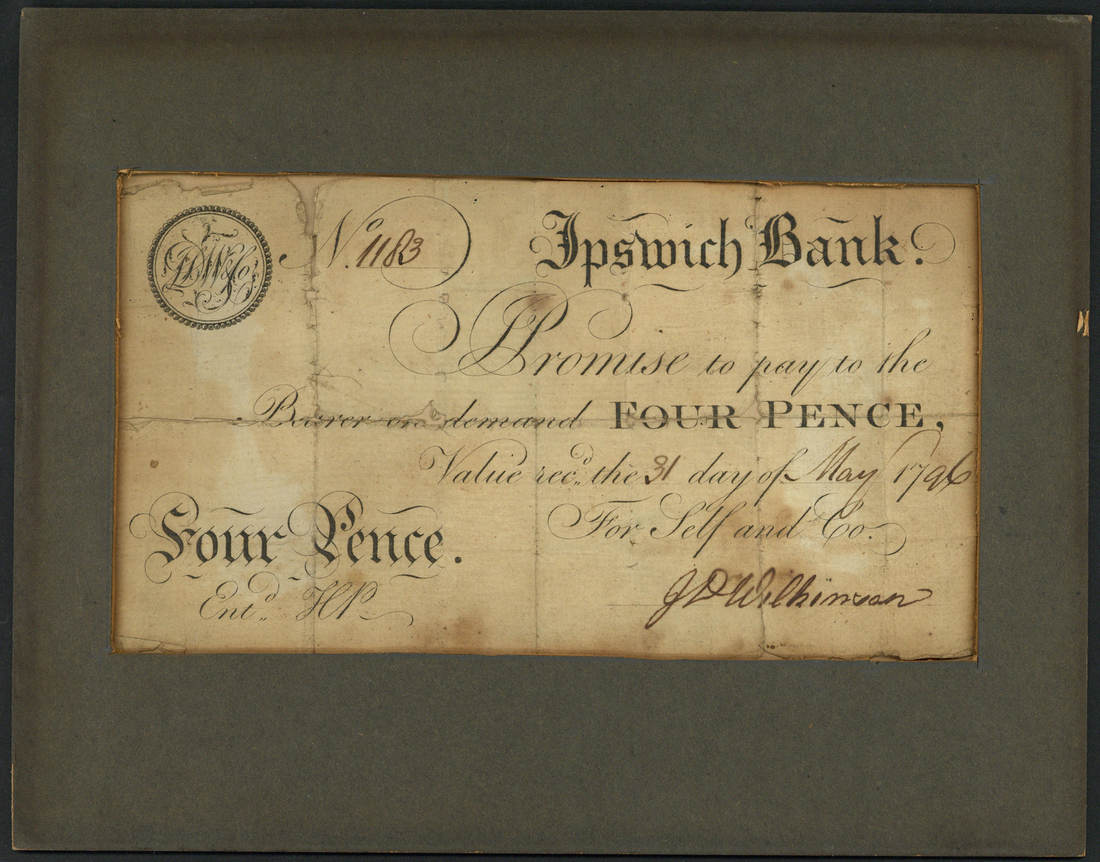 JDW&Co
No. 1183
Ipswich Bank.
I Promise to pay to the
Bearer on demand FOUR PENCE,
Value recd. the 31 day of May 1796
For Self and Co.
Four Pence.
Entd. HP
JD Wilkinson